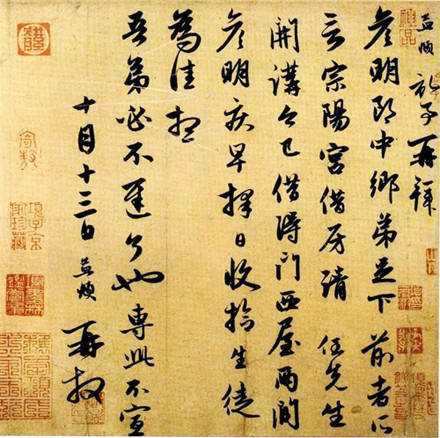 孟頫頓首再拜
彦明郎中鄉弟足下前者所
言宗陽宮借房請任先生
開講今已借得門西屋兩間
彦明疾早擇日收拾生徒
為佳想
吾弟必不遲了也專此不宣
十月十三日孟頫再拜
項子京家珍藏